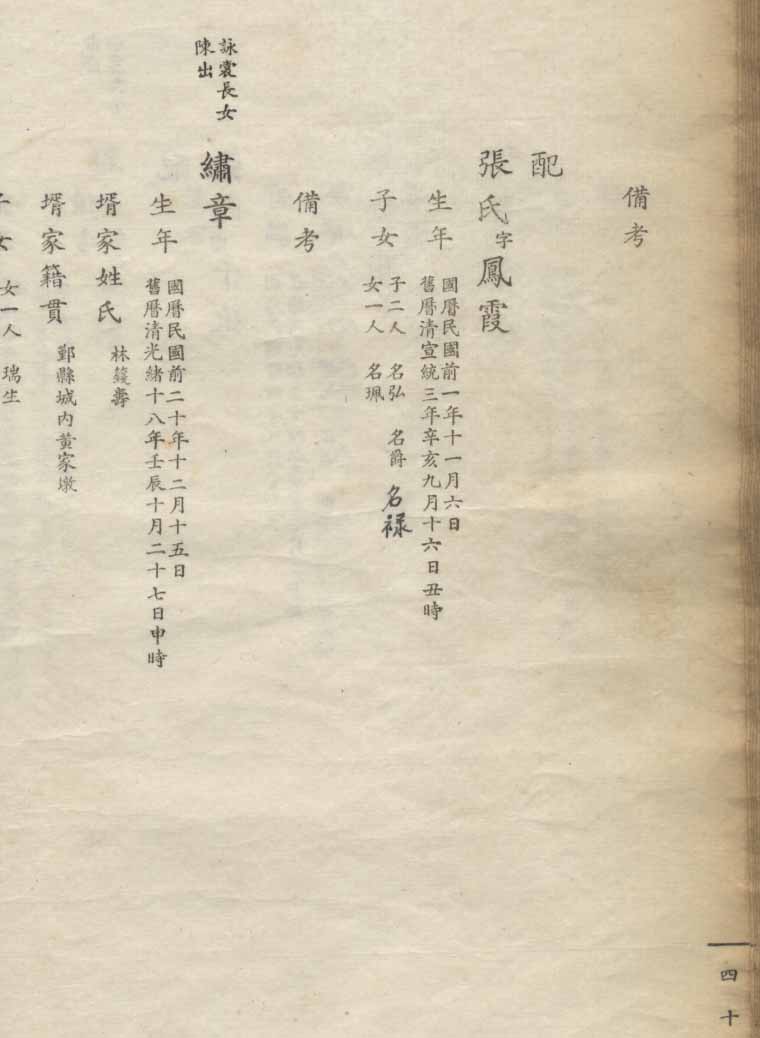 備考
配
張氏字鳳霞
生年
國曆民國前一年十一月六日
舊曆清宣統三年辛亥九月十六日丑時
子女
子二人 名弘 名爵 名祿
女一人 名珮
備考
詠裳長女
陳出
繡章
生年
國曆民國前二十年十二月十五日
舊曆清光緒十八年壬辰十月二十七日申時
壻家姓氏
林籛壽
壻家籍貫
鄞縣城內黃家墩
子女
女一人 瑞生
四十